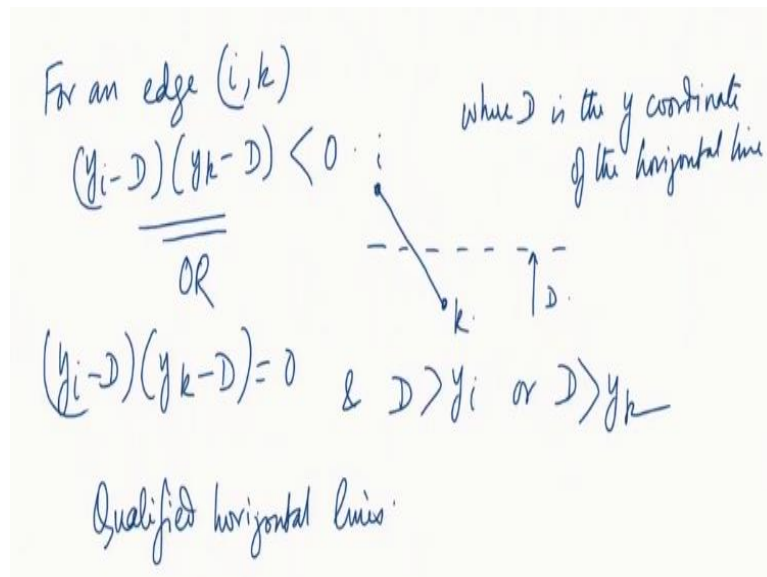 For an edge (i,k)
(yi-D)(yk-D) < 0
where D is the y coordinate
of the horizontal line
i
OR
D.
k.
(yi-D)(yk-D)=0 & D>yi or D>yk
Qualified horizontal lines.